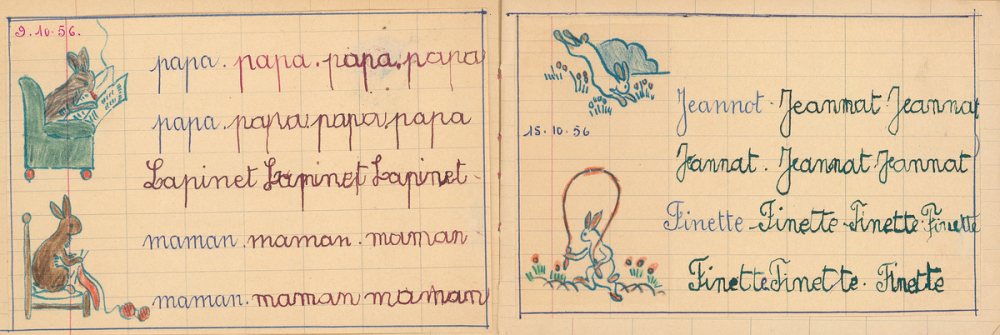 9.10.56.
papa. papa. papa. papa
papa. papa. papa. papa
Lapinet Lapinet Lapinet
maman. maman. maman
maman. maman maman
Jeannot. Jeannat Jeannat
15.10.56
Jannat. Jeannat Jeannat
Finette Finette Finette Finette
Finette Finette. Finette